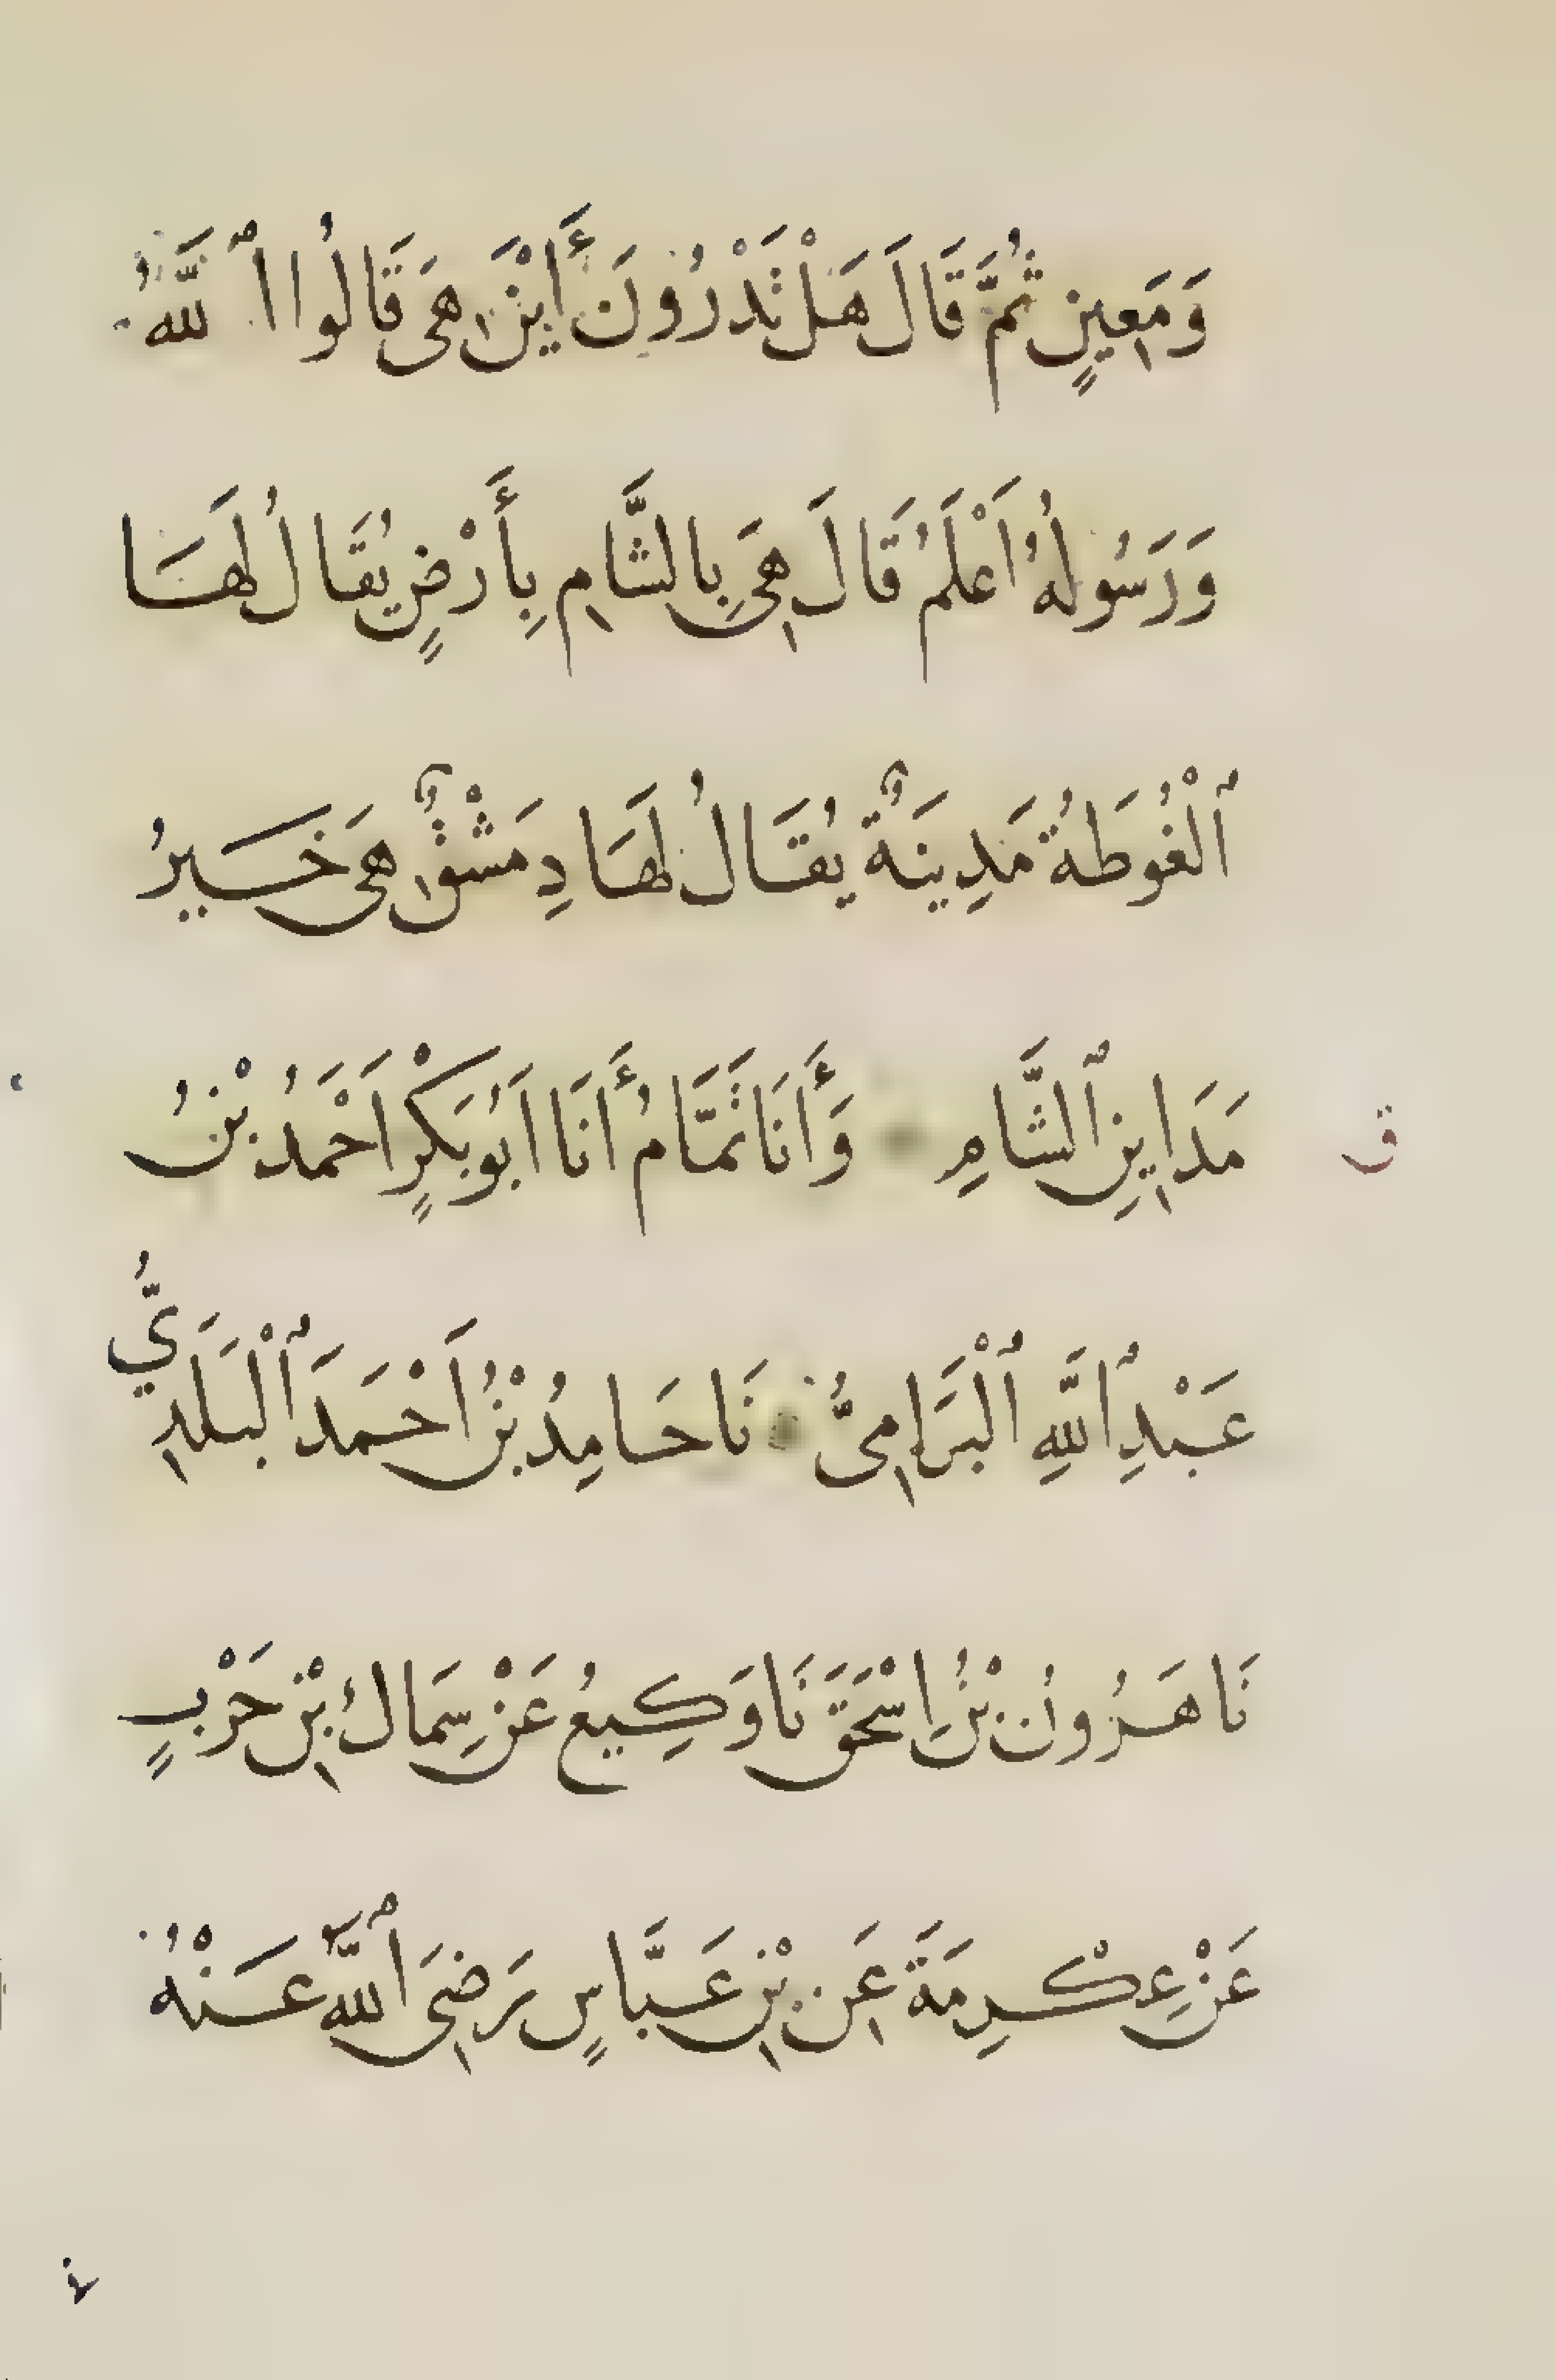 وَمَعِينٍ ثُمَّ قَالَ هَلْ تَدْرُونَ أَيْنَ هِيَ قَالُوا ٱللَّهُ
وَرَسُولُهُ أَعْلَمُ قَالَ هِيَ بِالشَّامِ بِأَرْضٍ يُقَالُ لَهَا
ٱلْغُوطَةُ مَدِينَةٌ يُقَالُ لَهَا دِمَشْقُ هِيَ خَيْرُ
ق مَدَاينِ ٱلشَّامِ وَأَنَا تَمَّامُ أَنَا اَبُو بَكْرٍ اَحْمَدُ بْنُ
عَبْدِ ٱللَّهِ ٱلْبَرَامِيُّ نَا حَامِدُ بْنُ اَحْمَدَ ٱلْبَلَدِيُّ
نَا هَرُونُ بْنُ اِسْحَقَ نَا وَكِيعُ عَنْ سِمَاكِ بْنِ حَرْبٍ
عَنْ عِكْرِمَةَ عَنِ بْنِ عَبَّاسٍ رَضِيَ ٱللَّهُ عَنْهُ